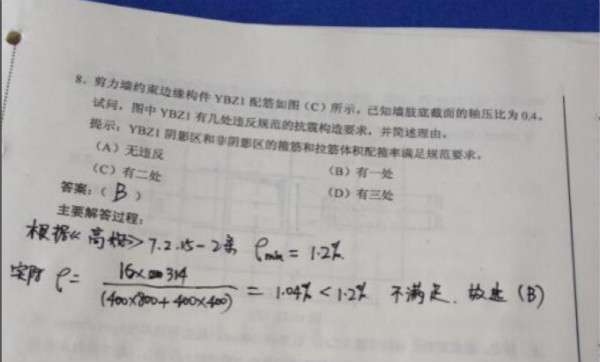 8. 剪力墙约束边缘构件 YBZ1 配筋如图（C）所示，已知墙肢底截面的轴压比为 0.4。
试问，图中 YBZ1 有几处违反规范的抗震构造要求，并简述理由。
提示：YBZ1 阴影区和非阴影区的箍筋和拉筋体积配箍率满足规范要求。
（A）无违反 （B）有一处
（C）有二处 （D）有三处
答案：（ B ）
主要解答过程：
根据《高规》7.2.15-2条 ρmin = 1.2%
实际 ρ = 16×314 / (400×800+400×400) = 1.04% < 1.2% 不满足. 故选 (B)